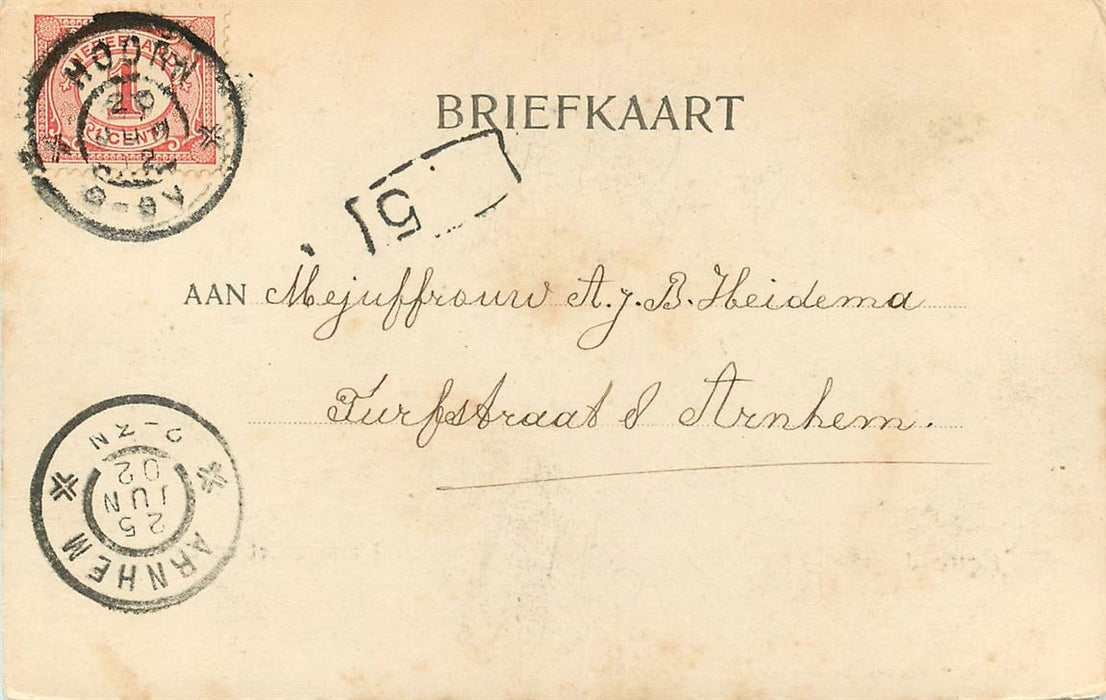 NEDERLAND
1
CENT
HOORN
BRIEFKAART
5
AAN Mejuffrouw A. J. B. Heidema
Turfstraat 8 Arnhem.
2-3N
25
JUN
02
ARNHEM